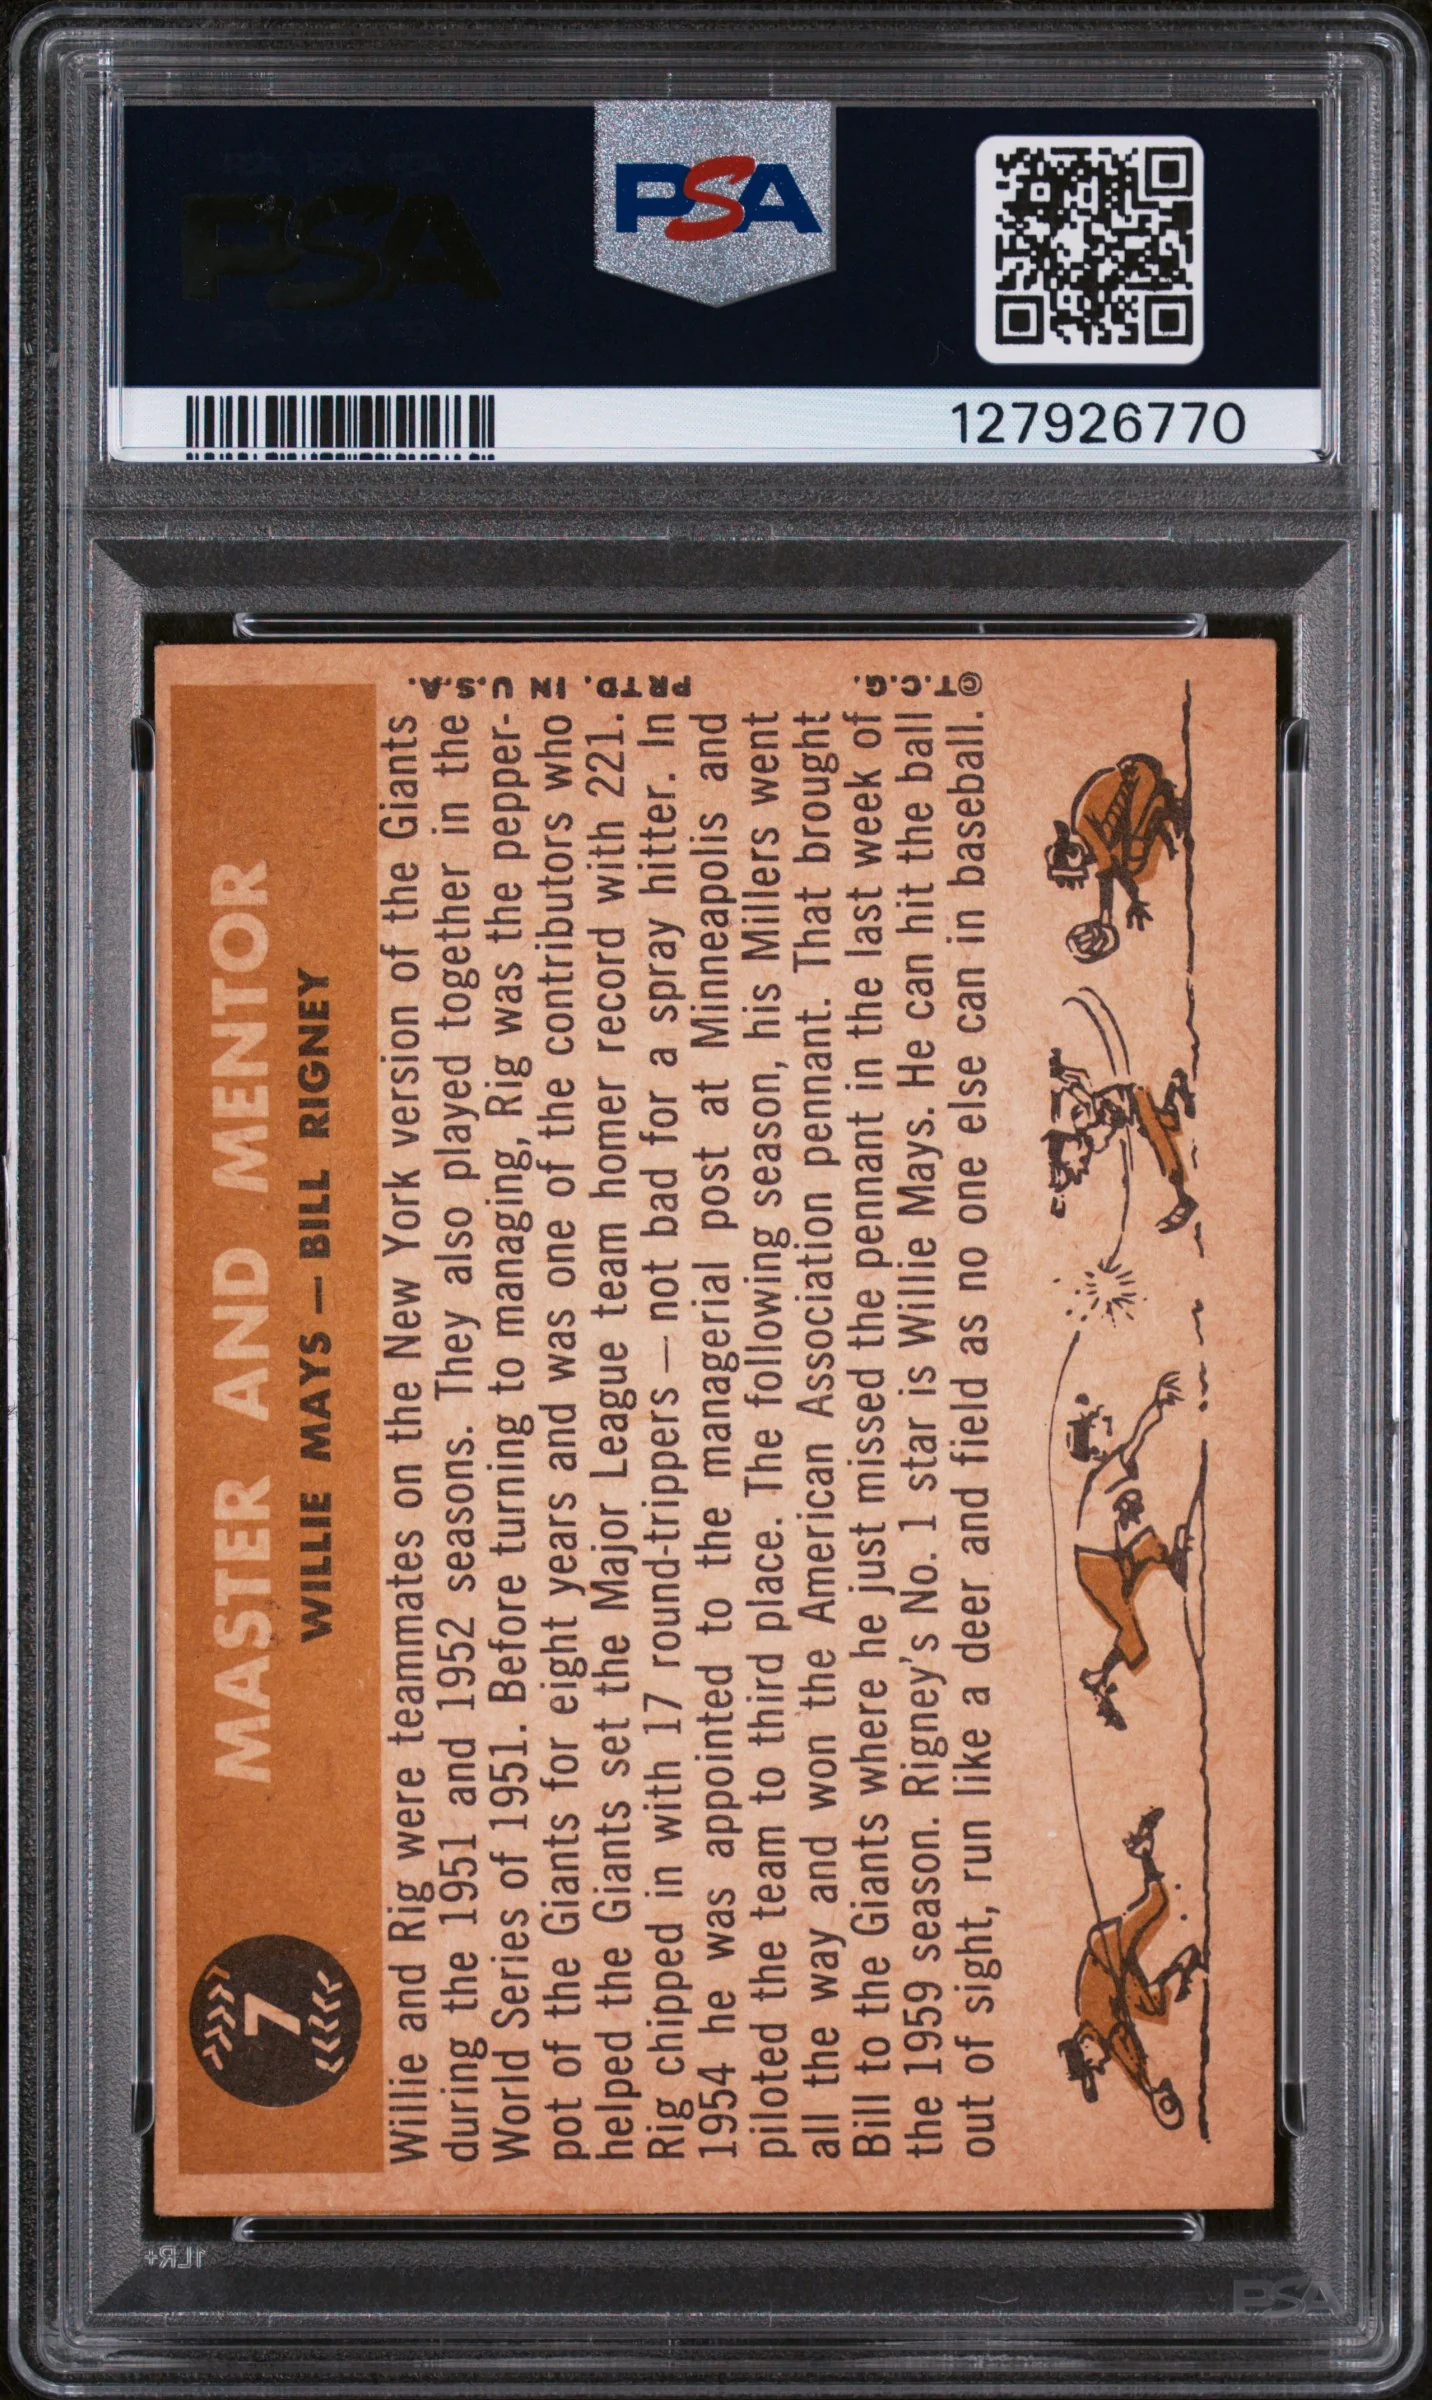 PSA
PSA
127926770
7
MASTER AND MENTOR
WILLIE MAYS — BILL RIGNEY
Willie and Rig were teammates on the New York version of the Giants
during the 1951 and 1952 seasons. They also played together in the
World Series of 1951. Before turning to managing, Rig was the pepper-
pot of the Giants for eight years and was one of the contributors who
helped the Giants set the Major League team homer record with 221.
Rig chipped in with 17 round-trippers — not bad for a spray hitter. In
1954 he was appointed to the managerial post at Minneapolis and
piloted the team to third place. The following season, his Millers went
all the way and won the American Association pennant. That brought
Bill to the Giants where he just missed the pennant in the last week of
the 1959 season. Rigney's No. 1 star is Willie Mays. He can hit the ball
out of sight, run like a deer and field as no one else can in baseball.
©T.C.G.
PRTD. IN U.S.A.
1LR+
PSA